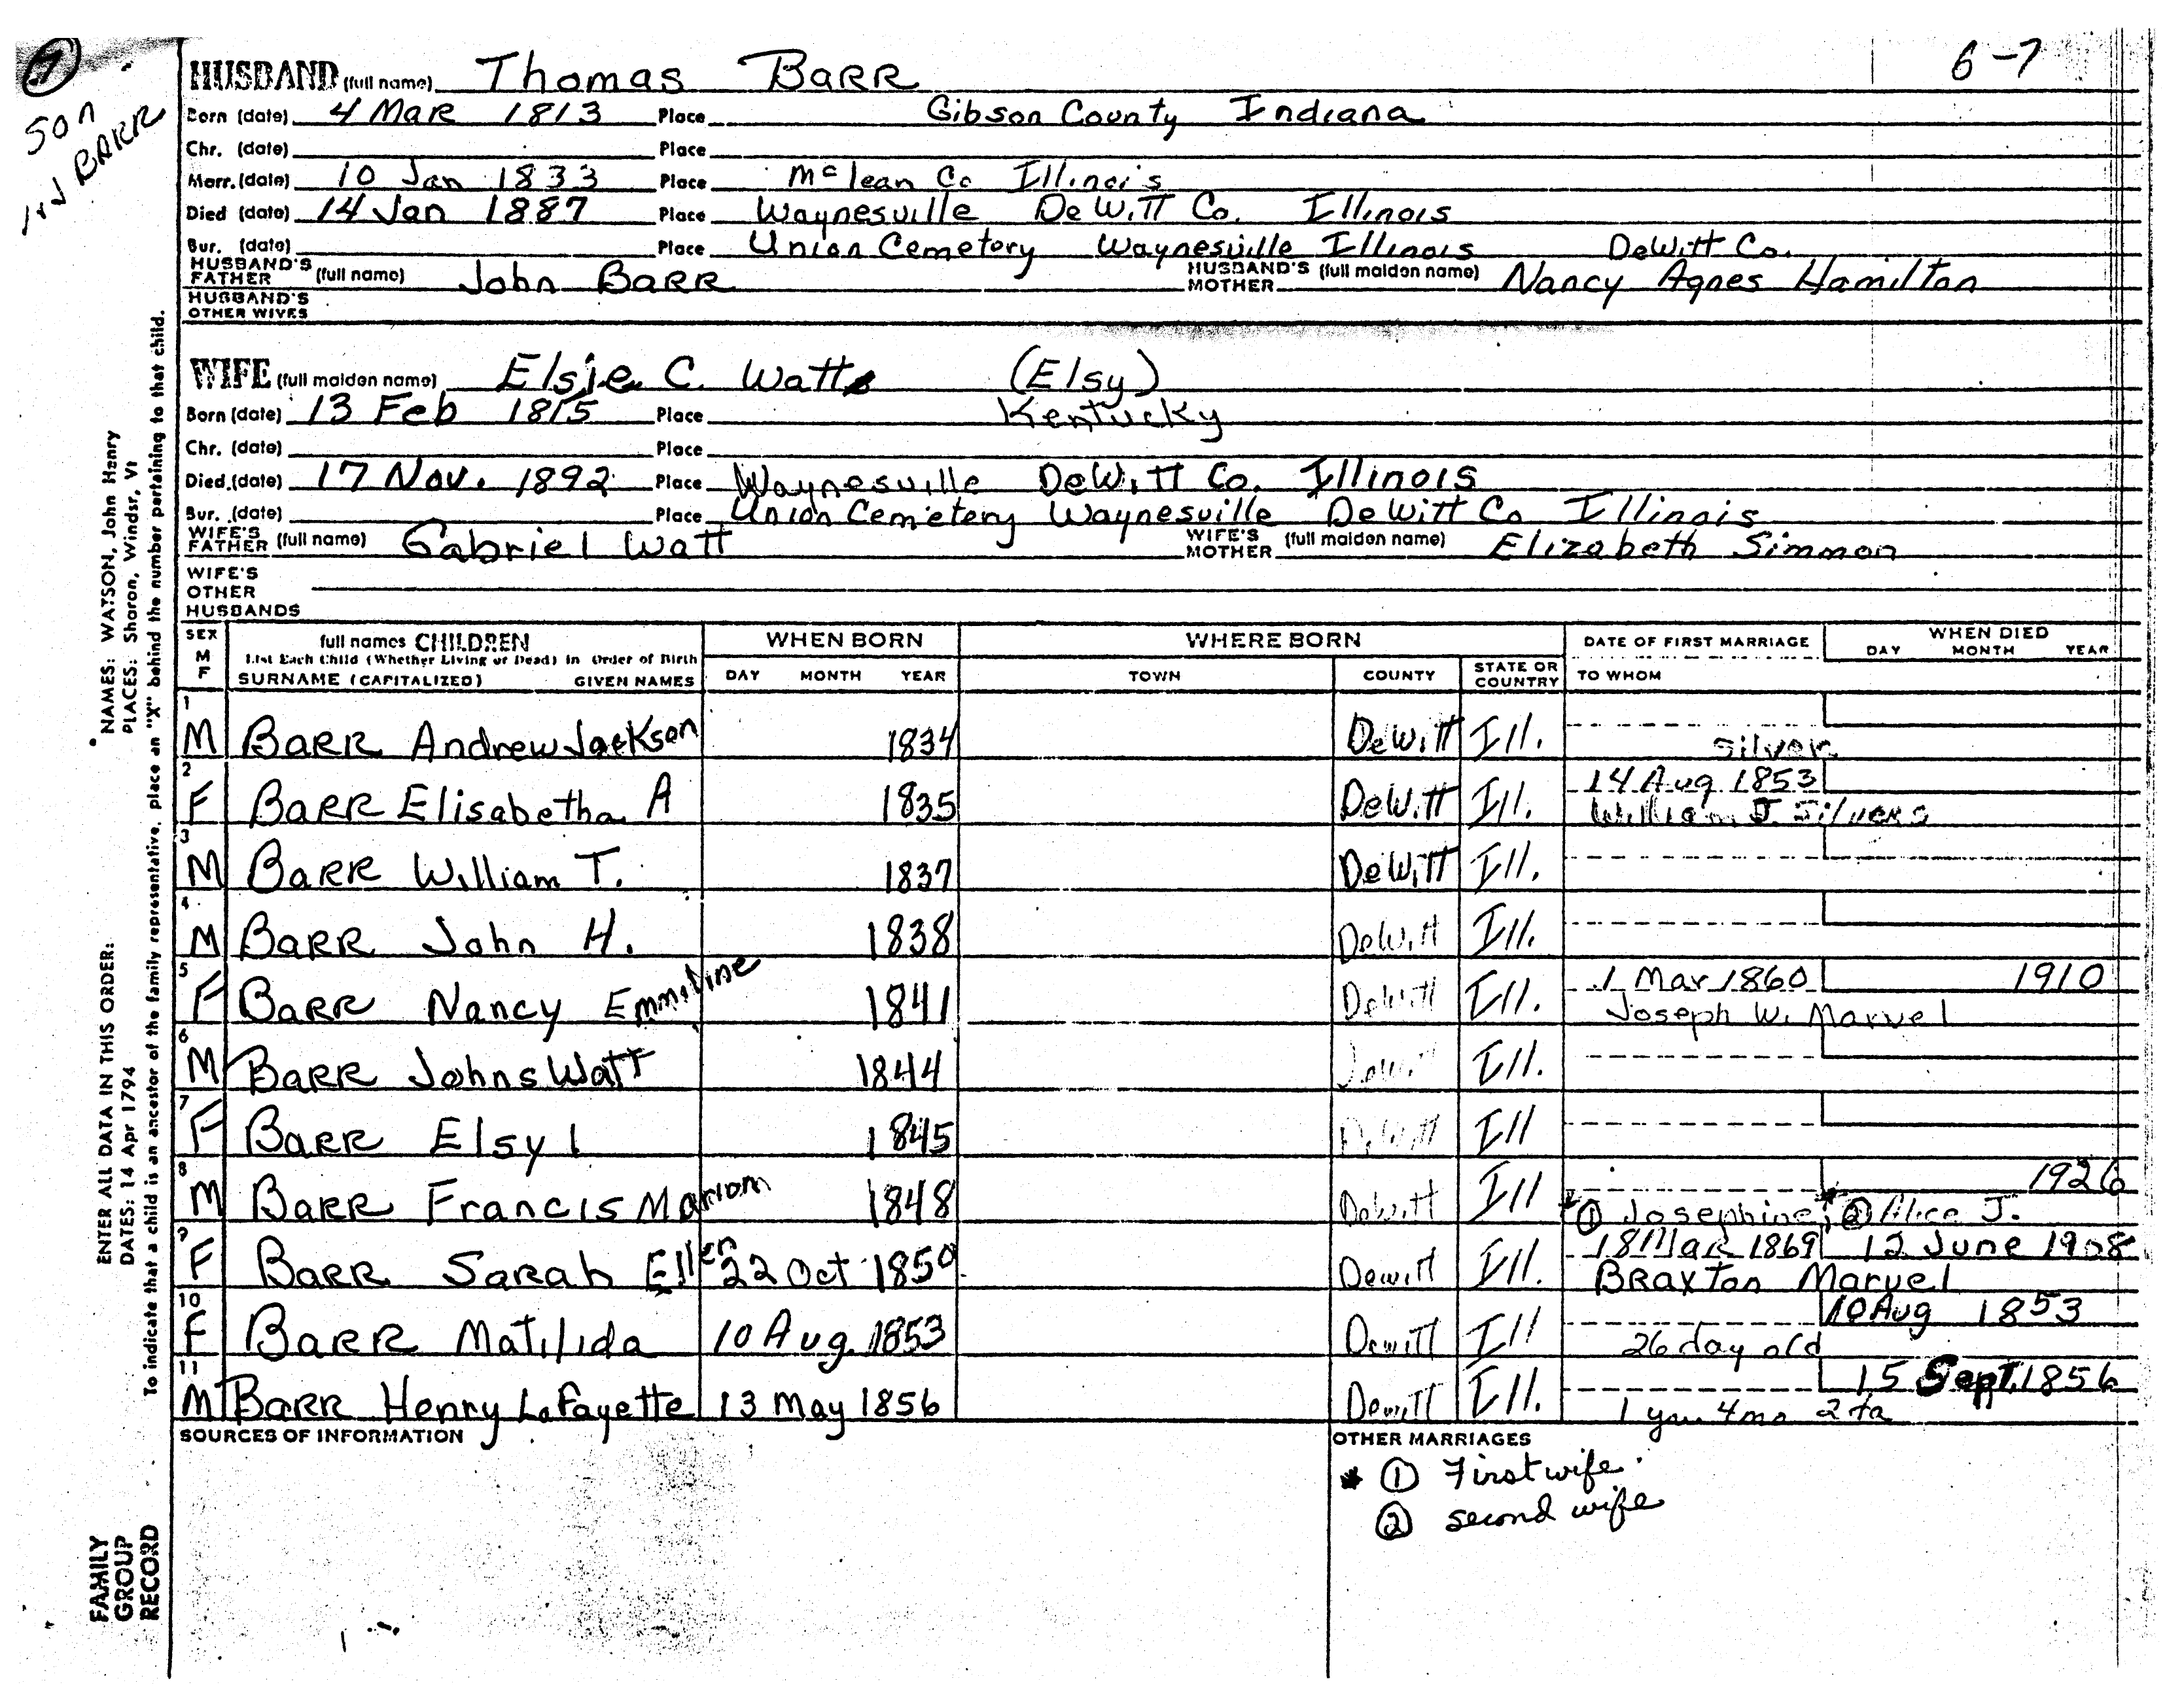 6-7
son
BARR
HUSBAND (full name) Thomas BARR
Born (date) 4 MAR 1813 Place Gibson County Indiana
Chr. (date) Place
Marr. (date) 10 Jan 1833 Place Mclean Co Illinois
Died (date) 14 Jan 1887 Place Waynesville DeWitt Co. Illinois
Bur. (date) Place Union Cemetery Waynesville Illinois DeWitt Co.
HUSBAND'S FATHER (full name) John BARR HUSBAND'S MOTHER (full maiden name) Nancy Agnes Hamilton
HUSBAND'S OTHER WIVES
WIFE (full maiden name) Elsie C. Watts (Elsy)
Born (date) 13 Feb 1815 Place Kentucky
Chr. (date) Place
Died (date) 17 Nov. 1892 Place Waynesville DeWitt Co. Illinois
Bur. (date) Place Union Cemetery Waynesville DeWitt Co Illinois
WIFE'S FATHER (full name) Gabriel Watt WIFE'S MOTHER (full maiden name) Elizabeth Simmon
WIFE'S OTHER HUSBANDS
SEX M F full names CHILDREN WHEN BORN WHERE BORN DATE OF FIRST MARRIAGE WHEN DIED
List Each Child (Whether Living or Dead) in Order of Birth
SURNAME (CAPITALIZED) GIVEN NAMES DAY MONTH YEAR TOWN COUNTY STATE OR COUNTRY TO WHOM DAY MONTH YEAR
1 M BARR Andrew Jackson 1834 DeWitt Ill. Silver
2 F BARR Elisabetha A 1835 DeWitt Ill. 14 Aug 1853
William J. Silvers
3 M BARR William T. 1837 DeWitt Ill.
4 M BARR John H. 1838 DeWitt Ill.
5 F BARR Nancy Emmiline 1841 DeWitt Ill. 1 Mar 1860 1910
Joseph W. Marvel
6 M BARR Johns Watt 1844 DeWitt Ill.
7 F BARR Elsy l 1845 DeWitt Ill
8 M BARR Francis Marion 1848 DeWitt Ill 1926
* ① Josephine, * ② Alice J.
9 F BARR Sarah Ellen 22 Oct 1850 Dewitt Ill. 18 Mar 1869 12 June 1908
BRAXTon Marvel
10 F BARR Matilida 10 Aug. 1853 Dewitt Ill 10 Aug 1853
26 day old
11 M BARR Henry LaFayette 13 May 1856 Dewitt Ill. 15 Sept. 1856
1 4 mo 2
SOURCES OF INFORMATION OTHER MARRIAGES
* ① First wife.
② second wife
NAMES: WATSON, John Henry
PLACES: Sharon, Windsr, Vt
ENTER ALL DATA IN THIS ORDER:
DATES: 14 Apr 1794
To indicate that a child is an ancestor of the family representative, place an "X" behind the number pertaining to that child.
FAMILY
GROUP
RECORD